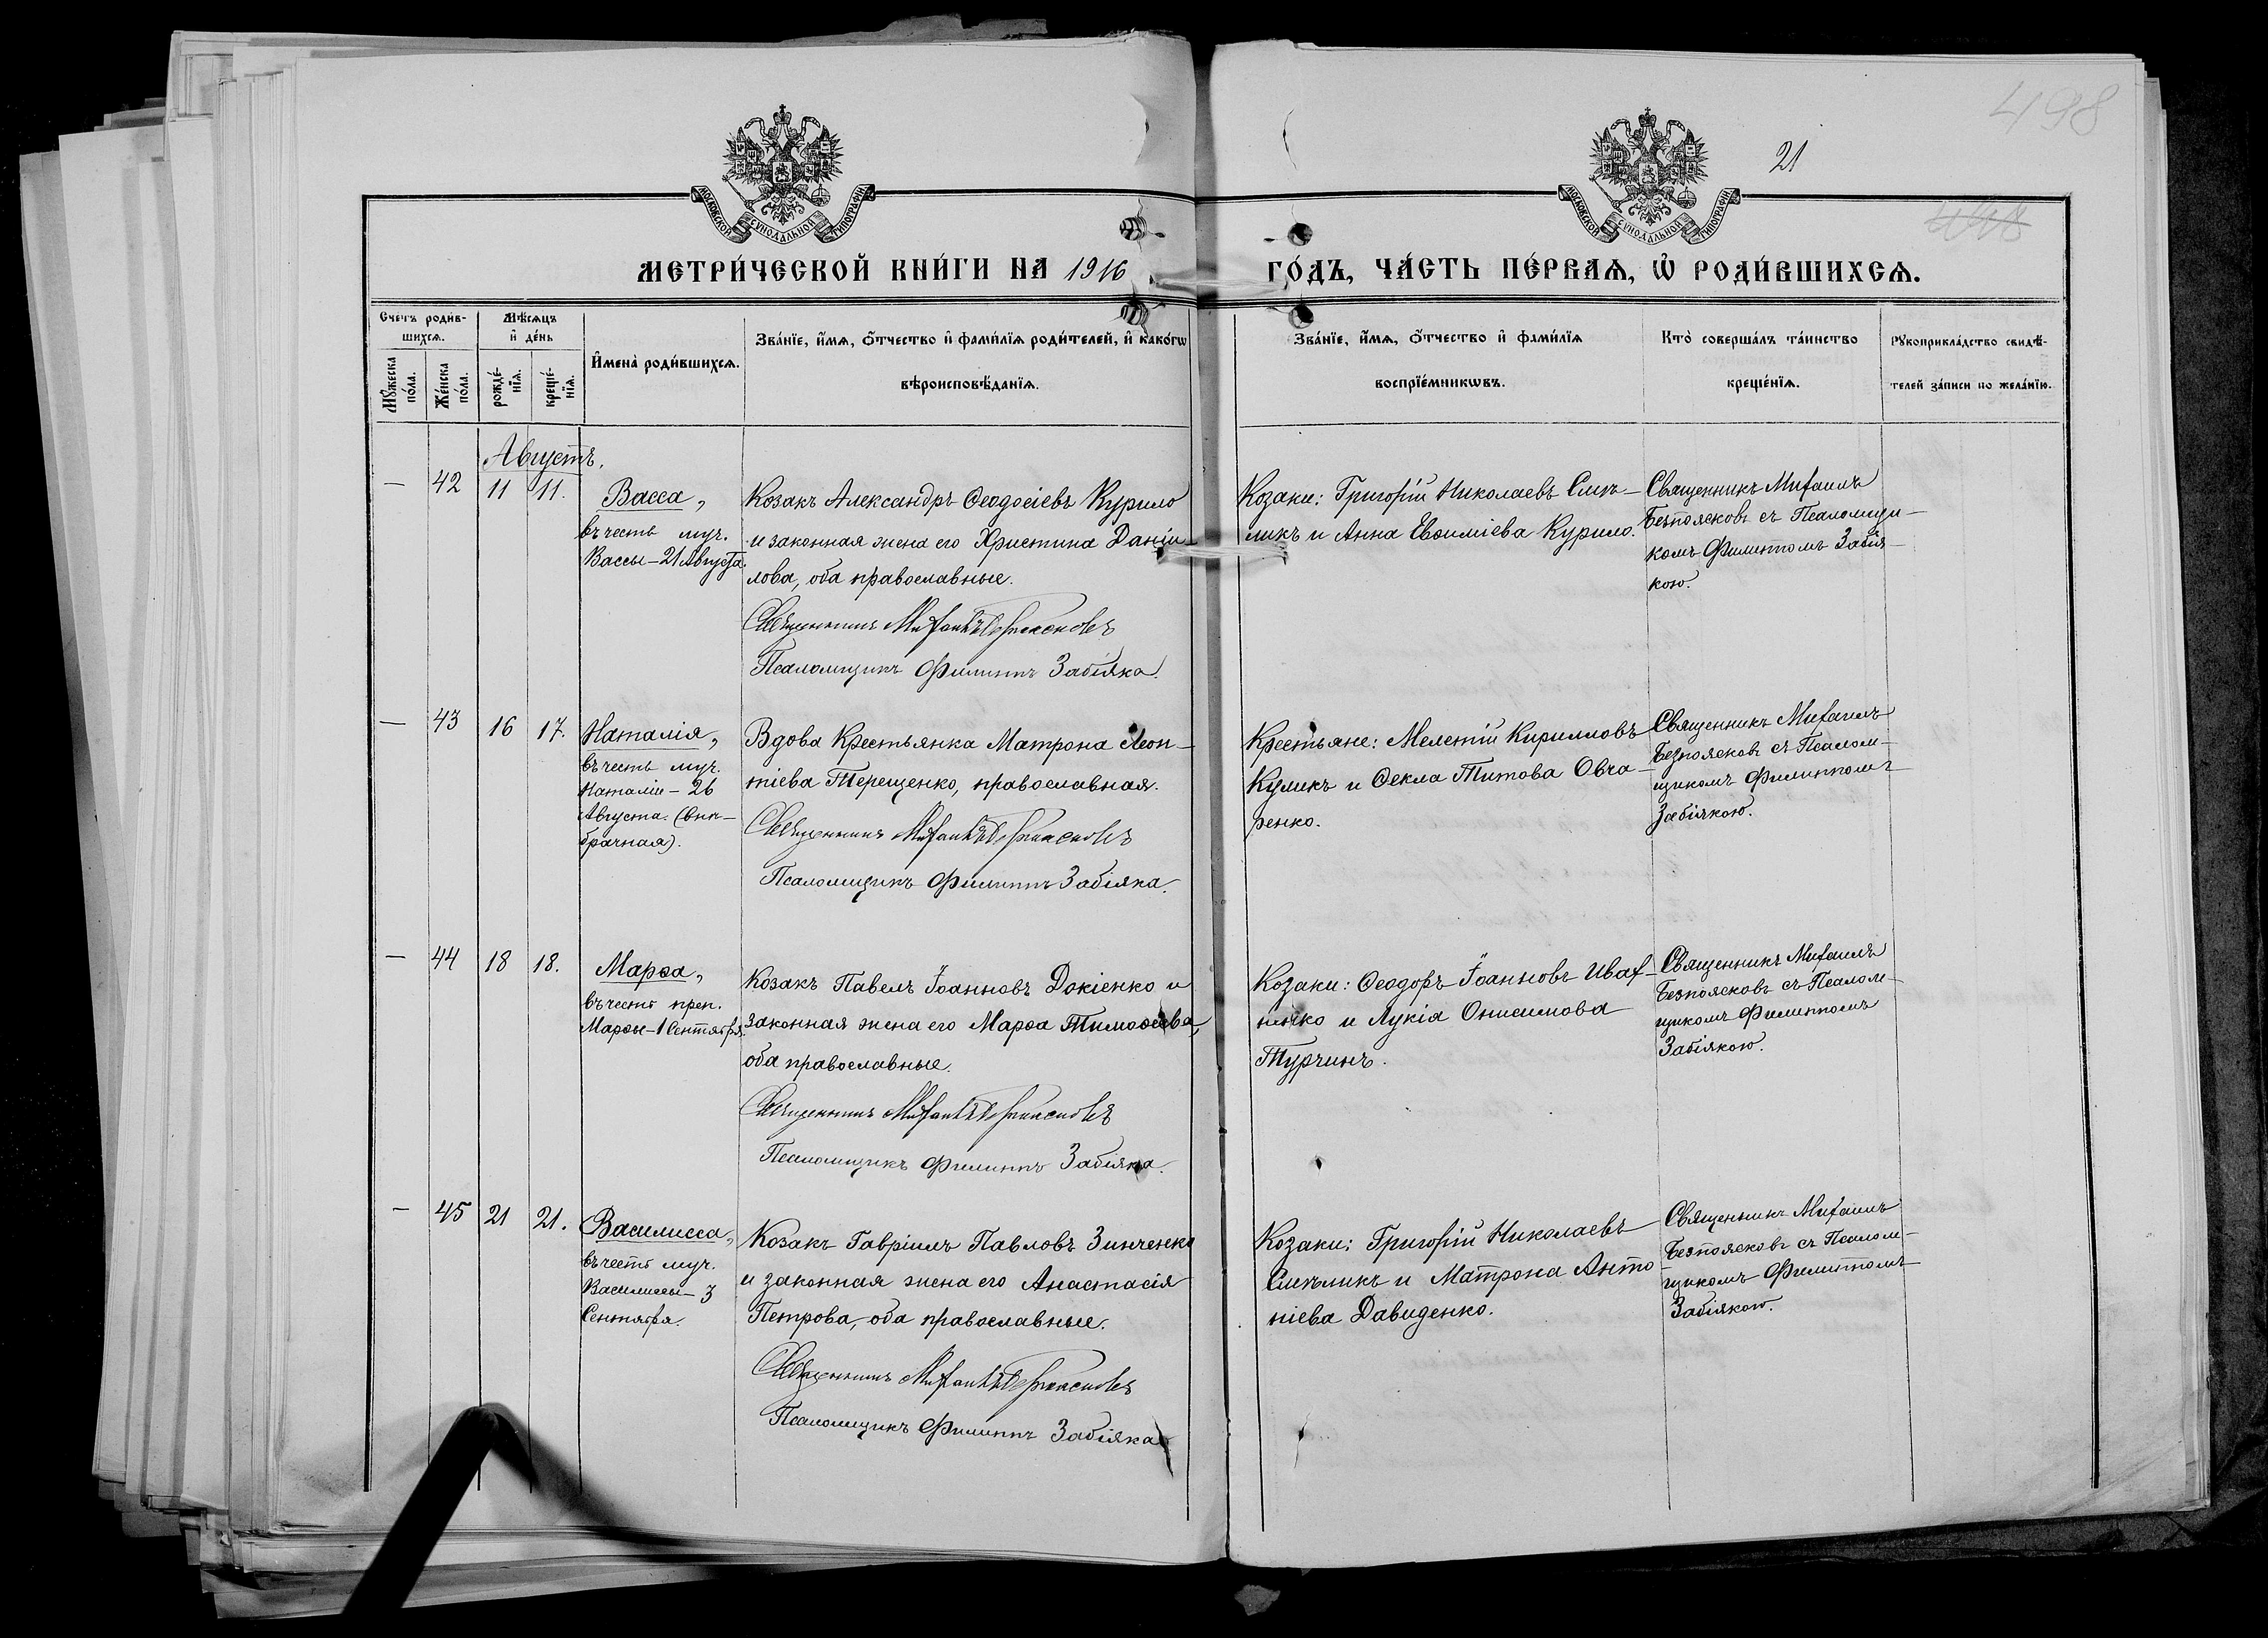 498
21
448
МОСКОВСКОЙ СѴНОДАЛЬНОЙ ТИПОГРАФІИ
МОСКОВСКОЙ СѴНОДАЛЬНОЙ ТИПОГРАФІИ
МЕТРИ́ЧЕСКОЙ КНИ́ГИ НА 1916 ГО́ДЪ, ЧА́СТЬ ПЕ́РВАѦ, Ѡ҆ РОДИ́ВШИХСѦ.
Счетъ роди́вшихсѧ.
Мꙋ́жеска по́ла.
Же́нска по́ла.
Мѣ́сѧцъ и҆ де́нь
рожде́нїѧ.
креще́нїѧ.
И҆мена̀ роди́вшихсѧ.
Зва́нїе, и҆́мѧ, ѻ҆́тчество и҆ фами́лїѧ роди́телей, и҆ како́гѡ
вѣроисповѣ́данїѧ.
Зва́нїе, и҆́мѧ, ѻ҆́тчество и҆ фами́лїѧ
воспрїе́мникѡвъ.
Кто̀ соверша́лъ та́инство
креще́нїѧ.
Рꙋкоприкла́дство свидѣ́-
телей за́писи по жела́нїю.
Августъ.
— 42 11 11.
Васса,
въ честь муч.
Вассы – 21 Августа.
Козакъ Александръ Ѳеодосіевъ Курило
и законная жена его Христина Даніи-
лова, оба православные.
Священникъ Михаилъ Безпоясковъ
Псаломщикъ Филиппъ Забіяка.
Козаки: Григорій Николаевъ Смѣ-
ликъ и Анна Евѳиміева Курило.
Священникъ Михаилъ
Безпоясковъ съ Псаломщи-
комъ Филиппомъ Забія-
кою.
— 43 16 17.
Наталія,
въ честь муч.
Наталіи – 26
Августа. (внѣ-
брачная).
Вдова Крестьянка Матрона Леон-
тіева Терещенко, православная.
Священникъ Михаилъ Безпоясковъ
Псаломщикъ Филиппъ Забіяка.
Крестьяне: Мелетій Кирилловъ
Куликъ и Ѳекла Титова Овча-
ренко.
Священникъ Михаилъ
Безпоясковъ съ Псалом-
щикомъ Филиппомъ
Забіякою.
— 44 18 18.
Марѳа,
въ честь преп.
Марѳы – 1 Сентября.
Козакъ Павелъ Іоанновъ Докіенко и
законная жена его Марѳа Тимоѳеева,
оба православные.
Священникъ Михаилъ Безпоясковъ
Псаломщикъ Филиппъ Забіяка.
Козаки: Ѳеодоръ Іоанновъ Ивах-
ненко и Лукія Онисимова
Турчинъ.
Священникъ Михаилъ
Безпоясковъ съ Псалом-
щикомъ Филиппомъ
Забіякою.
— 45 21 21.
Василисса,
въ честь муч.
Василиссы – 3
Сентября.
Козакъ Гавріилъ Павловъ Зинченко
и законная жена его Анастасія
Петрова, оба православные.
Священникъ Михаилъ Безпоясковъ
Псаломщикъ Филиппъ Забіяка
Козаки: Григорій Николаевъ
Смѣликъ и Матрона Анто-
ніева Давиденко.
Священникъ Михаилъ
Безпоясковъ съ Псалом-
щикомъ Филиппомъ
Забіякою.